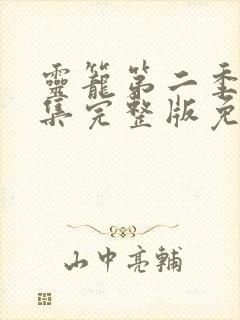 靈籠第二季
集完整版免
山中亮輔